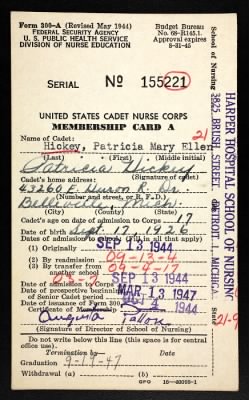 Form 200-A (Revised May 1944)
FEDERAL SECURITY AGENCY
U. S. PUBLIC HEALTH SERVICE
DIVISION OF NURSE EDUCATION
Budget Bureau
No. 68-R145.1.
Approval expires
8-31-45
SERIAL No 155221
UNITED STATES CADET NURSE CORPS
MEMBERSHIP CARD A
Name of Cadet: 21
Hickey, Patricia Mary Ellen
(Last) (First) (Middle initial)
Patricia Hickey
Cadet's home address: (Signature of cadet)
43260 E. Huron R. Dr.
(Number and street, or R. F. D.)
Belleville, Mich.
Cadet's age on date of admission to Corps 17
Date of birth Sept. 17, 1926
Dates of admission to Corps:
(1) Originally SEP 13 1944
(2) By readmission 09-13-4
(3) By transfer from another school 09-4-17
Date of admission to School SEP 13 1944
Date of prospective beginning of Senior Cadet period MAR 13 1947
Date of issuance of Form 300 1944
Certificate of Membership
Augusta
(Signature of Director of School of Nursing)
Do not write below this line (this space to be used by central office)
Termination by Date
Graduation 9-19-47
Withdrawal (a)
GPO 16-40098-1
School of Nursing
HARPER HOSPITAL SCHOOL OF NURSING
3825 BRUSH STREET, DETROIT 1, MICHIGAN
State
21-9